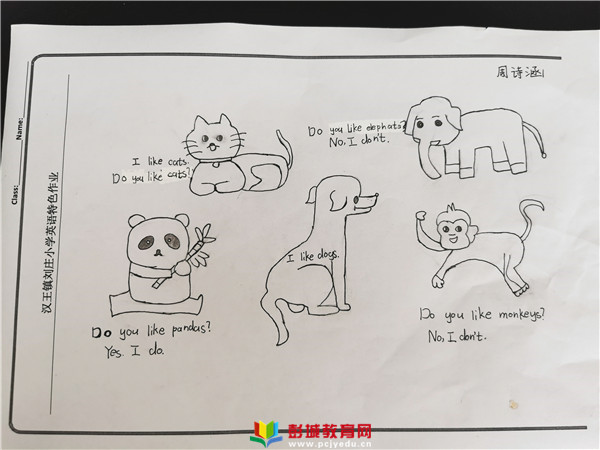 周诗涵
Class:
Name:
汉王镇刘庄小学英语特色作业
I like cats.
Do you like cats?
Do you like elephats?
No, I don't.
I like dogs.
Do you like pandas?
Yes. I do.
Do you like monkeys?
No, I don't.
彭城教育网
www.pcjyedu.cn